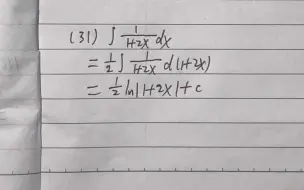 (31) ∫ 1/(1+2x) dx
= 1/2 ∫ 1/(1+2x) d(1+2x)
= 1/2 ln|1+2x|+c